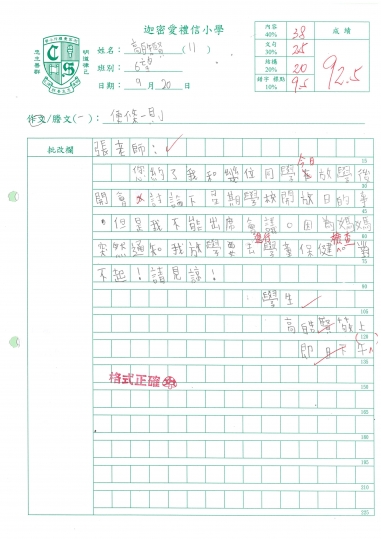 迦密愛禮信小學
姓名：高皓賢 (11)
班別：6望
日期：9月20日
內容 40% 38
文句 30% 25
結構 20% 20
錯字 標點 10% 9.5
成績
92.5
作文/謄文(一)：便條一則
批改欄
張老師：
您約了我和幾位同學今日放學後
開會，討論下星期學校開放日的事
，但是我不能出席會議。因為媽媽
突然通知我放學要去學童保健檢查。對
不起！請見諒！
學生
高皓賢敬上
即日下午
格式正確
15
30
45
60
75
90
105
120
135
150
165
180
195
210
225